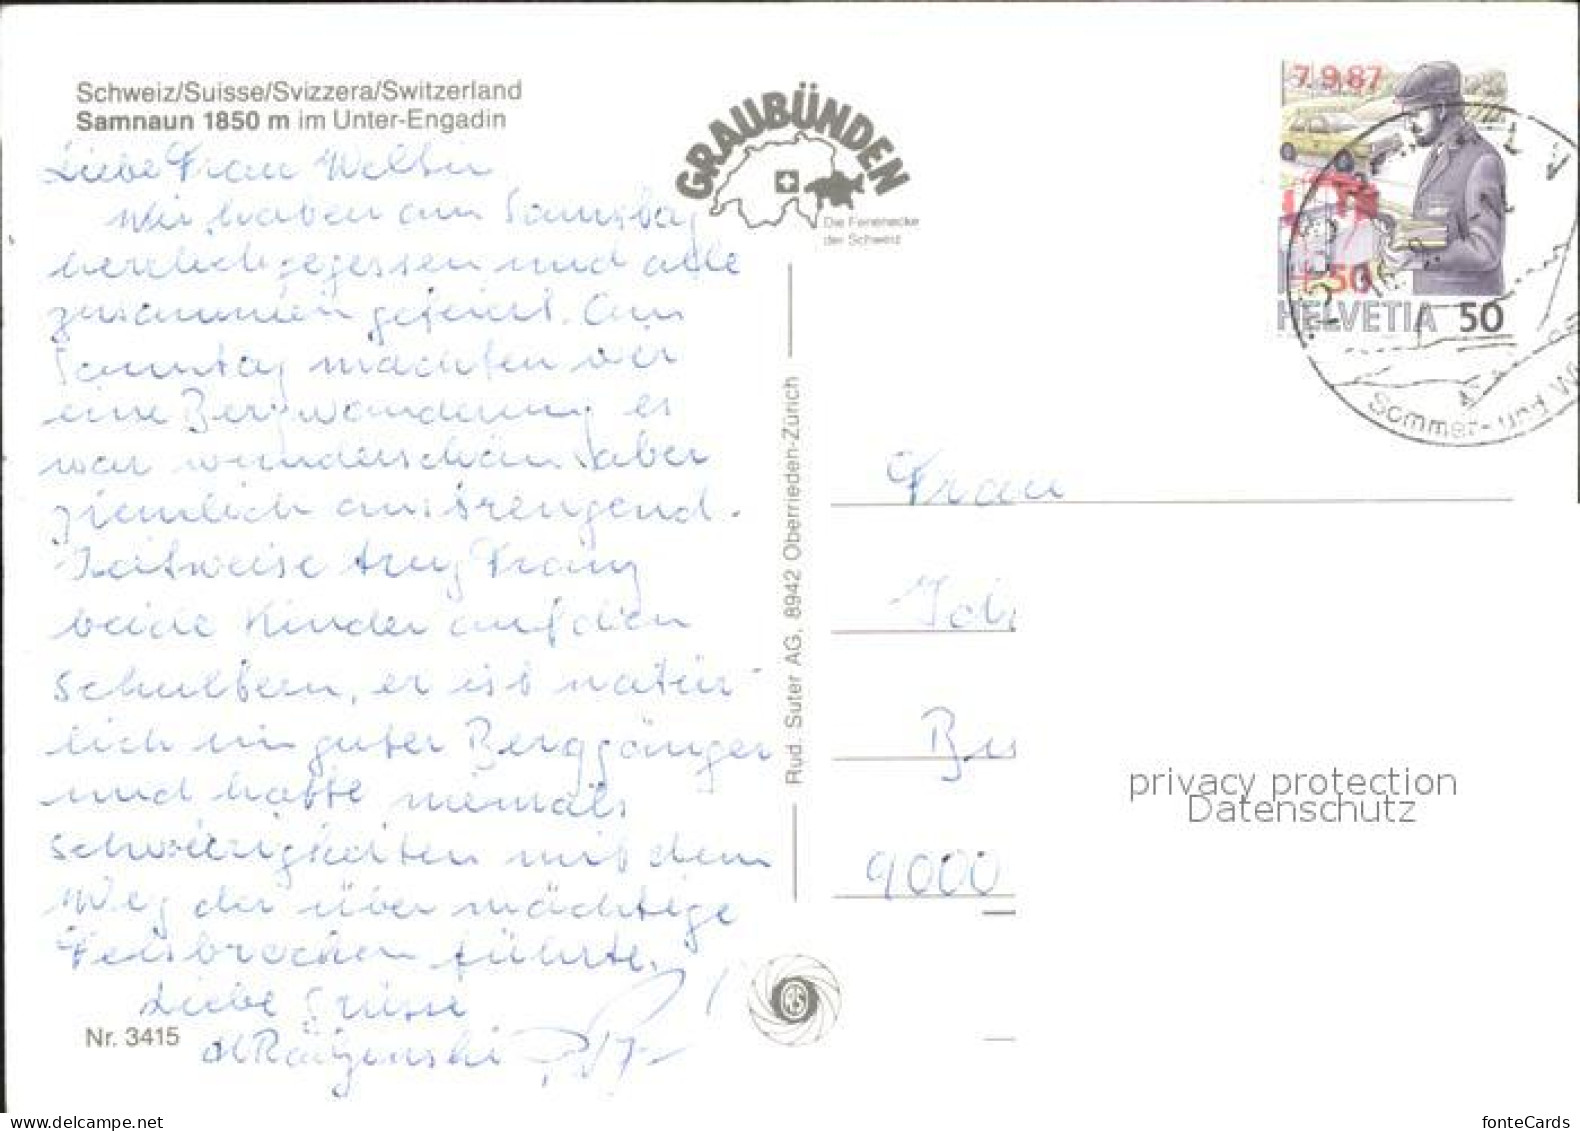 Schweiz/Suisse/Svizzera/Switzerland
Samnaun 1850 m im Unter-Engadin
Liebe Frau
Wir haben am Samstag
herrlich gegessen und alle
zusammen gefeiert. Am
Sonntag machten wir
eine Bergwanderung es
war wunderschön aber
ziemlich anstrengend.
Zeitweise trug Franz
beide Kinder auf den
Schultern, er ist natür-
lich ein guter Berggänger
und hatte niemals
schwierigkeiten mit dem
Weg der über mächtige
Felsbrocken führte.
Liebe Grüsse
Nr. 3415
GRAUBÜNDEN
Die Ferienecke
der Schweiz
Rud. Suter AG, 8942 Oberrieden-Zürich
7.9.87
+50
HELVETIA 50
Sommer- und Wi
Frau
9000
privacy protection
Datenschutz
www.delcampe.net
fonteCards